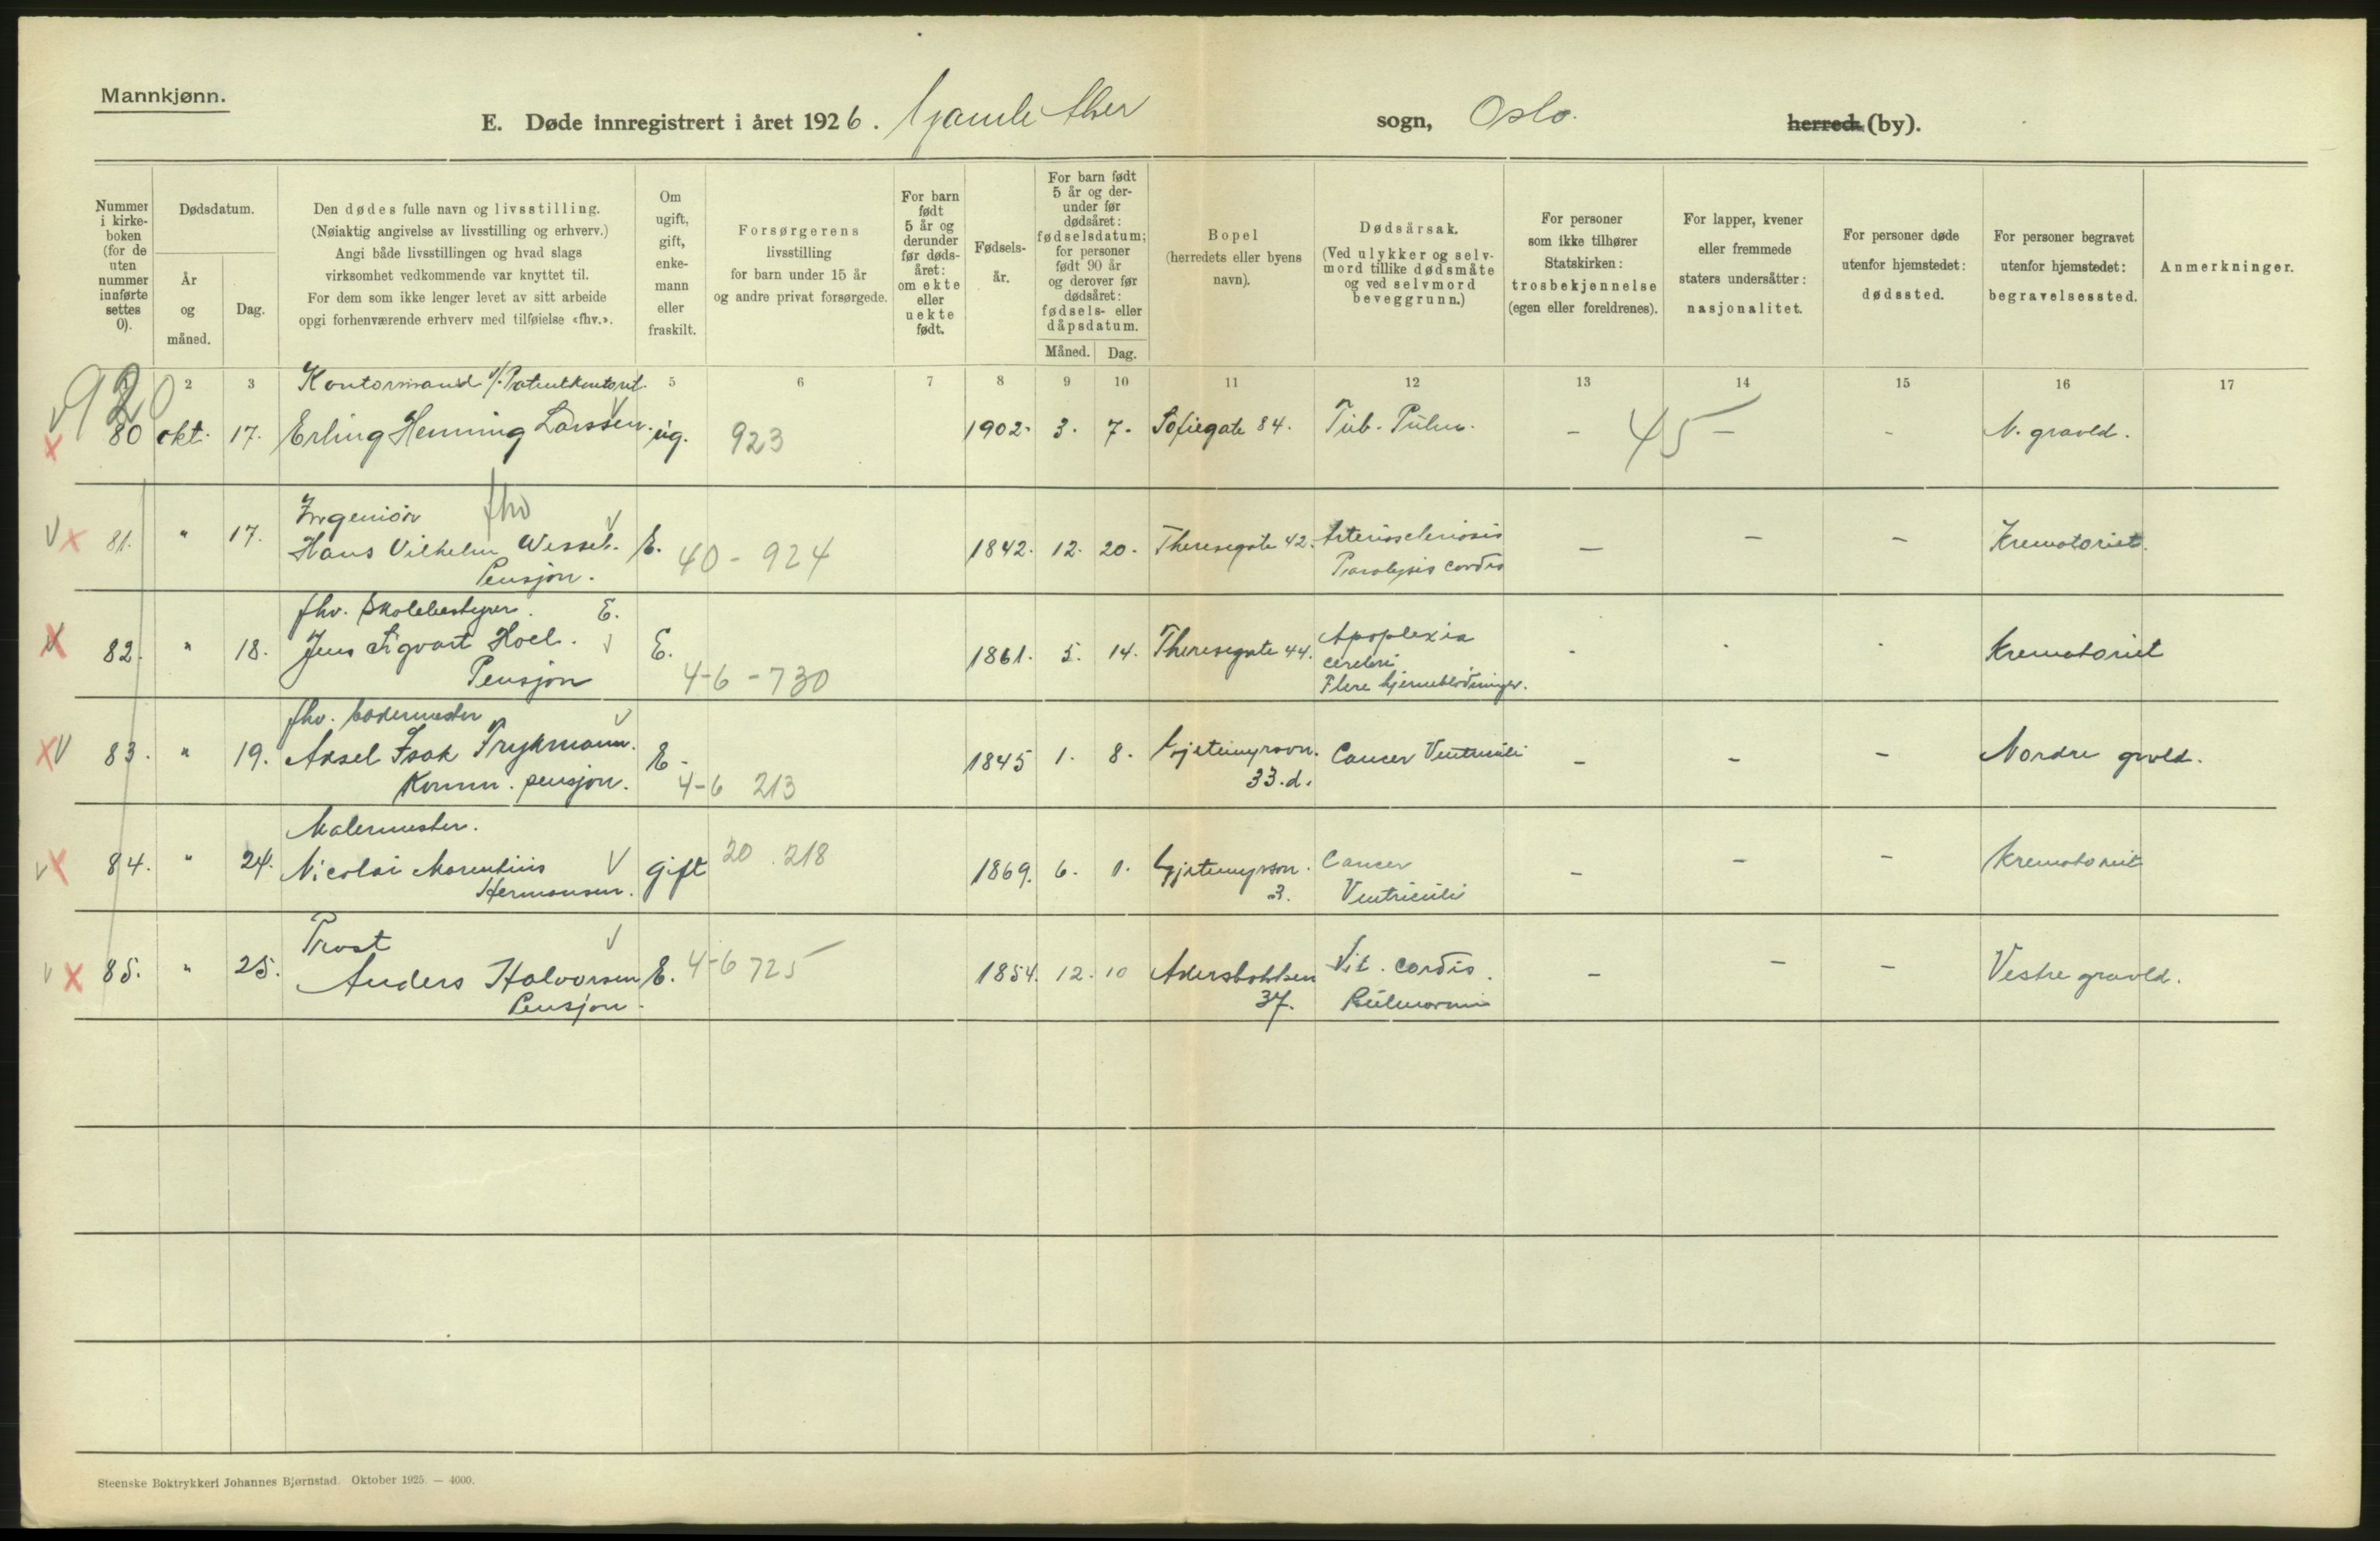 Mannkjønn.
E. Døde innregistrert i året 1926. Gamle Aker sogn, Oslo. herred (by).
Nummer i kirkeboken (for de uten nummer innførte settes 0).
Dødsdatum.
År og måned.
Dag.
Den dødes fulle navn og livsstilling.
(Nøiaktig angivelse av livsstilling og erhverv.)
Angi både livsstillingen og hvad slags
virksomhet vedkommende var knyttet til.
For dem som ikke lenger levet av sitt arbeide
opgi forhenværende erhverv med tilføielse «fhv.».
Om ugift, gift, enkemann eller fraskilt.
Forsørgerens
livsstilling
for barn under 15 år
og andre privat forsørgede.
For barn født 5 år og derunder før dødsåret: om ekte eller uekte født.
Fødselsår.
For barn født 5 år og derunder før dødsåret: fødselsdatum; for personer født 90 år og derover før dødsåret: fødsels- eller dåpsdatum.
Måned. Dag.
Bopel
(herredets eller byens
navn).
Dødsårsak.
(Ved ulykker og selvmord tillike dødsmåte og ved selvmord beveggrunn.)
For personer
som ikke tilhører
Statskirken:
trosbekjennelse
(egen eller foreldrenes).
For lapper, kvener
eller fremmede
staters undersåtter:
nasjonalitet.
For personer døde
utenfor hjemstedet:
dødssted.
For personer begravet
utenfor hjemstedet:
begravelsessted.
Anmerkninger.
920
2 3 5 6 7 8 9 10 11 12 13 14 15 16 17
Kontormand v/. Patentkontoret.
80 okt. 17. Erling Henning Larssen. ug. 923 1902. 3. 7. Sofiegate 84. Tub. Pulm. - 45 - - N. gravld.
Ingeniør fhv
81. " 17. Hans Vilhelm Wessel. E. 40 - 924 1842. 12. 20. Theresegate 42. Arteriosclerosis - - - Krematoriet.
Pensjon. Paralysis cordis
fhv. Skolebestyrer. E.
82. " 18. Jens Sigvart Hoel. E. 4-6 - 730 1861. 5. 14. Theresegate 44. Apoplexia - - - Krematoriet
Pensjon cerebri.
Flere hjerneblødninger.
fhv. Bødkermester
83. " 19. Aksel Isak Trykmann. E. 4-6 213 1845 1. 8. Gjeitemyrsvn. Cancer Ventriculi - - - Nordre gravld.
Komm. pensjon. 33.d.
Malermester.
84. " 24. Nicolai Marentius gift 20 . 218 1869. 6. 1. Gjetemyrsvn. Cancer - - - Krematoriet
Hermansen. 3. Ventriculi
Prost
85. " 25. Anders Halvorsen E. 4-6 725 1854. 12. 10 Akersbakken Vit. cordis. - - - Vestre gravld.
Pensjon. 37.
Steenske Boktrykkeri Johannes Bjørnstad. Oktober 1925. — 4000.